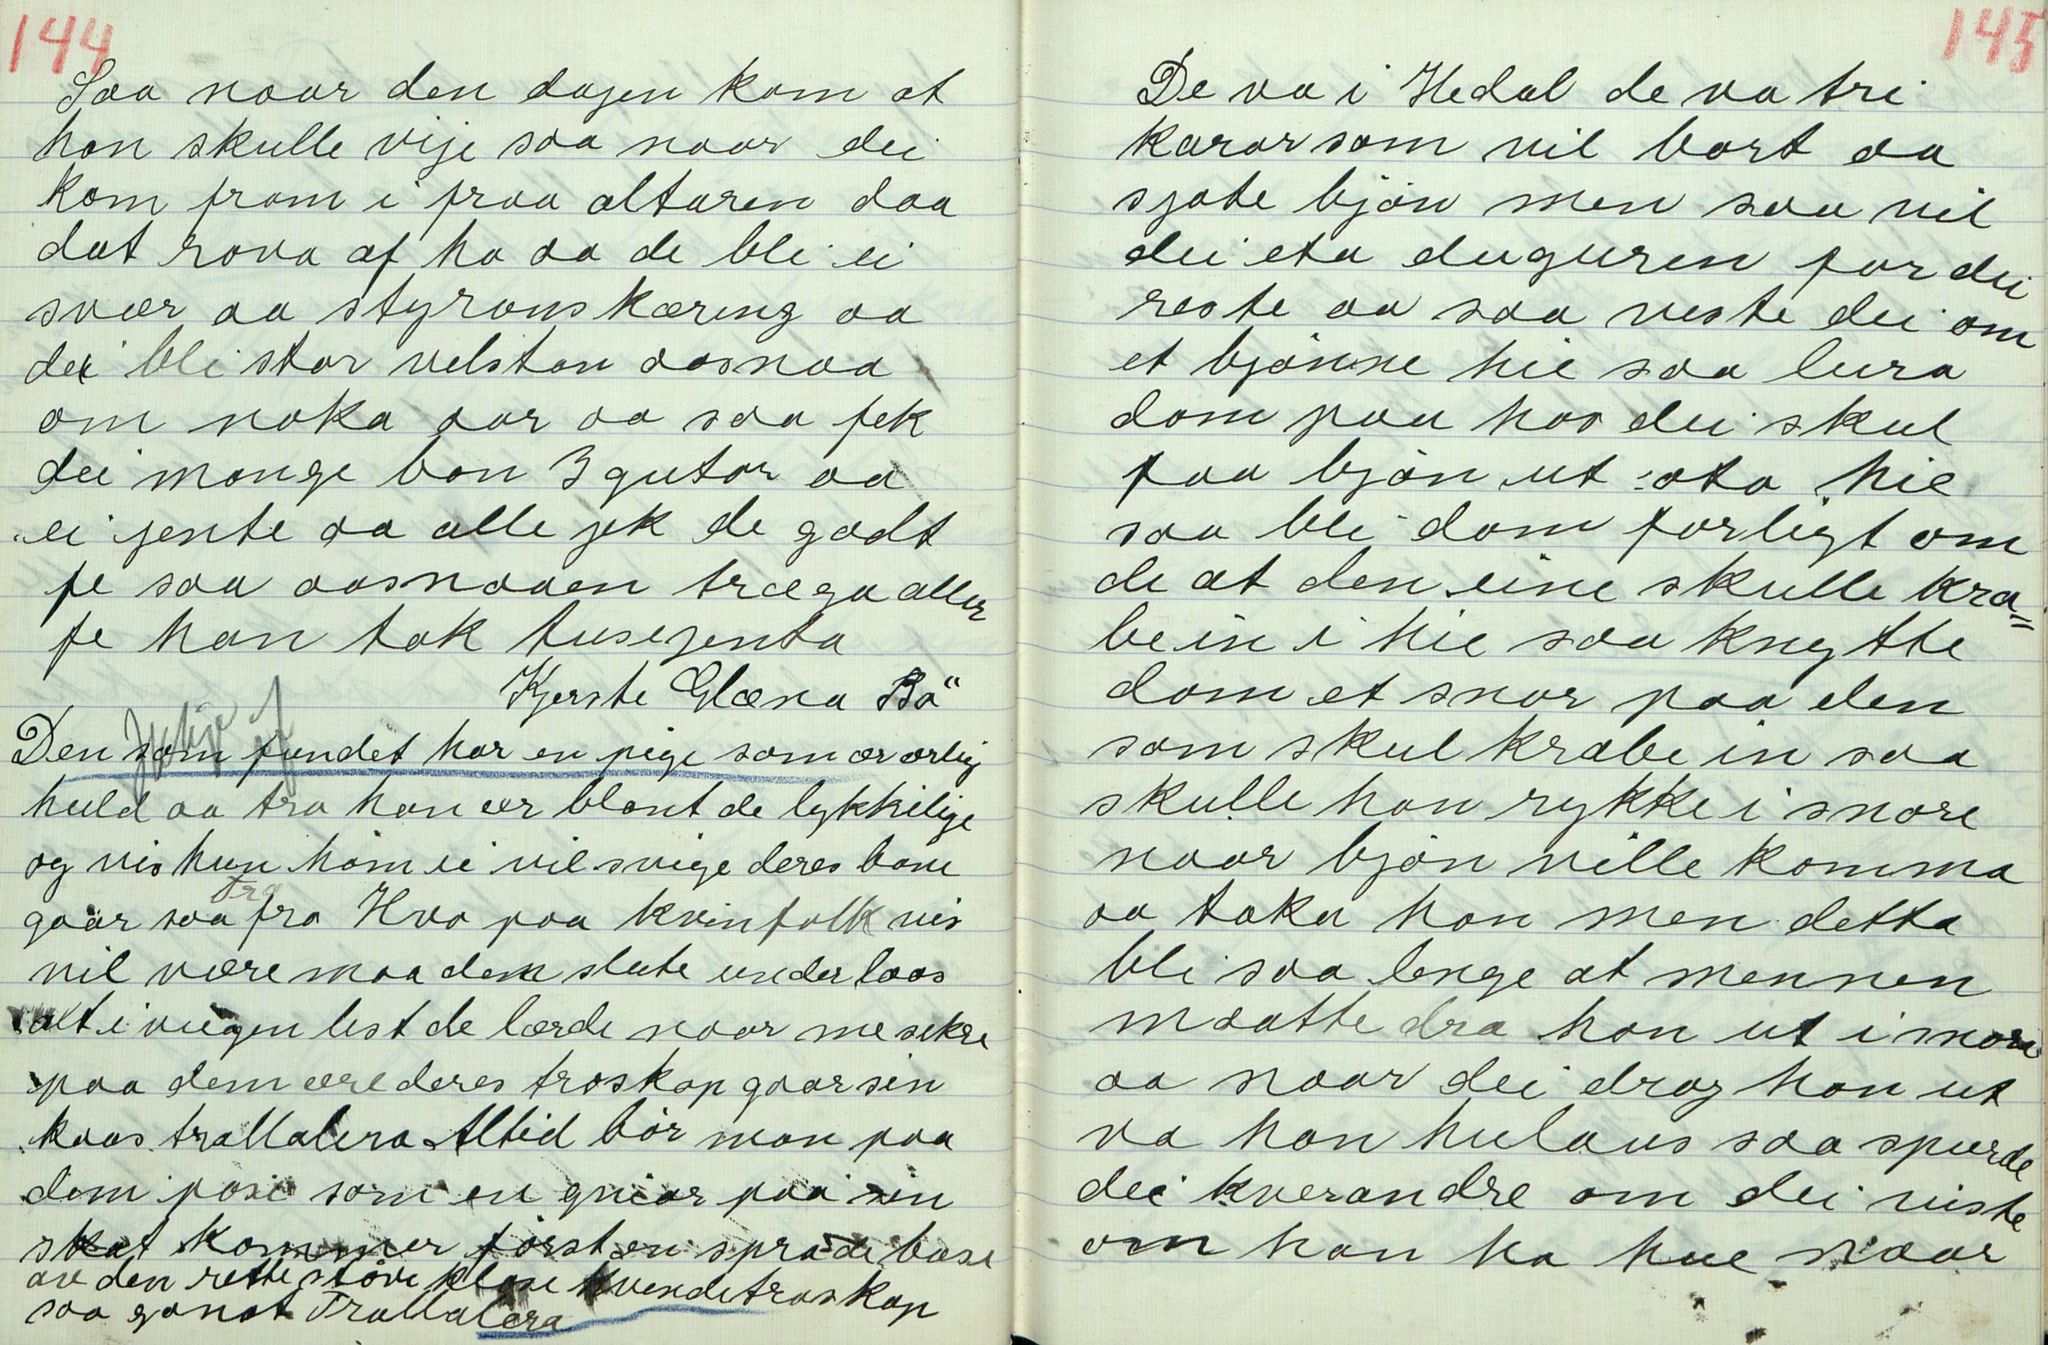 144
Saa naar den dagen kom at
han skulle vije saa naar dei
kom fram i fraa altaren daa
dat rova af ho aa de bli ei
svær aa styrans kæring aa
dei bli stor velstan aasnaa
om noka aar aa saa fek
dei mange bon 3 gutar aa
ei jente aa alle jek de godt
fe saa aasnaaen træga aller
fe han tok tusejenta
Kjerste Glæna Bö
Den som fundet har en pige som ær ærlig
huld aa tro han ær blant de lykkilige
og vis hun ham ei vil svige deres bane
gaar saa fra Hva paa kvinfolk vis
vil være maa dem slute under laas
alt i vugen list de lærde naar me sekre
paa dem ære deres troskap gaar sin
kaas trallalera Altid bör man paa
dem pase som en gniar paa sin
skat kommer först en sprade base
av den rette støvi plase kvendetroskap
saa gonat Trallalera
145
De va i Hedal de va tri
karar som vil bort aa
sjote bjön men saa vil
dei eta duguren før dei
reste aa saa veste dei om
et bjönne hie saa lura
dom paa hos dei skul
faa bjön ut ota hie
saa bli dom forligt om
de at den eine skulle kra=
be in i hie saa knytte
dom et snor paa den
som skul krabe in saa
skulle han rykke i snore
naar bjön ville komma
aa taka han men detta
bli saa lenge at mennen
maatte dra han ut i snore
aa naar dei drog han ut
va han hulaus saa spurde
dei kverandre om dei viste
om han ha hue naar